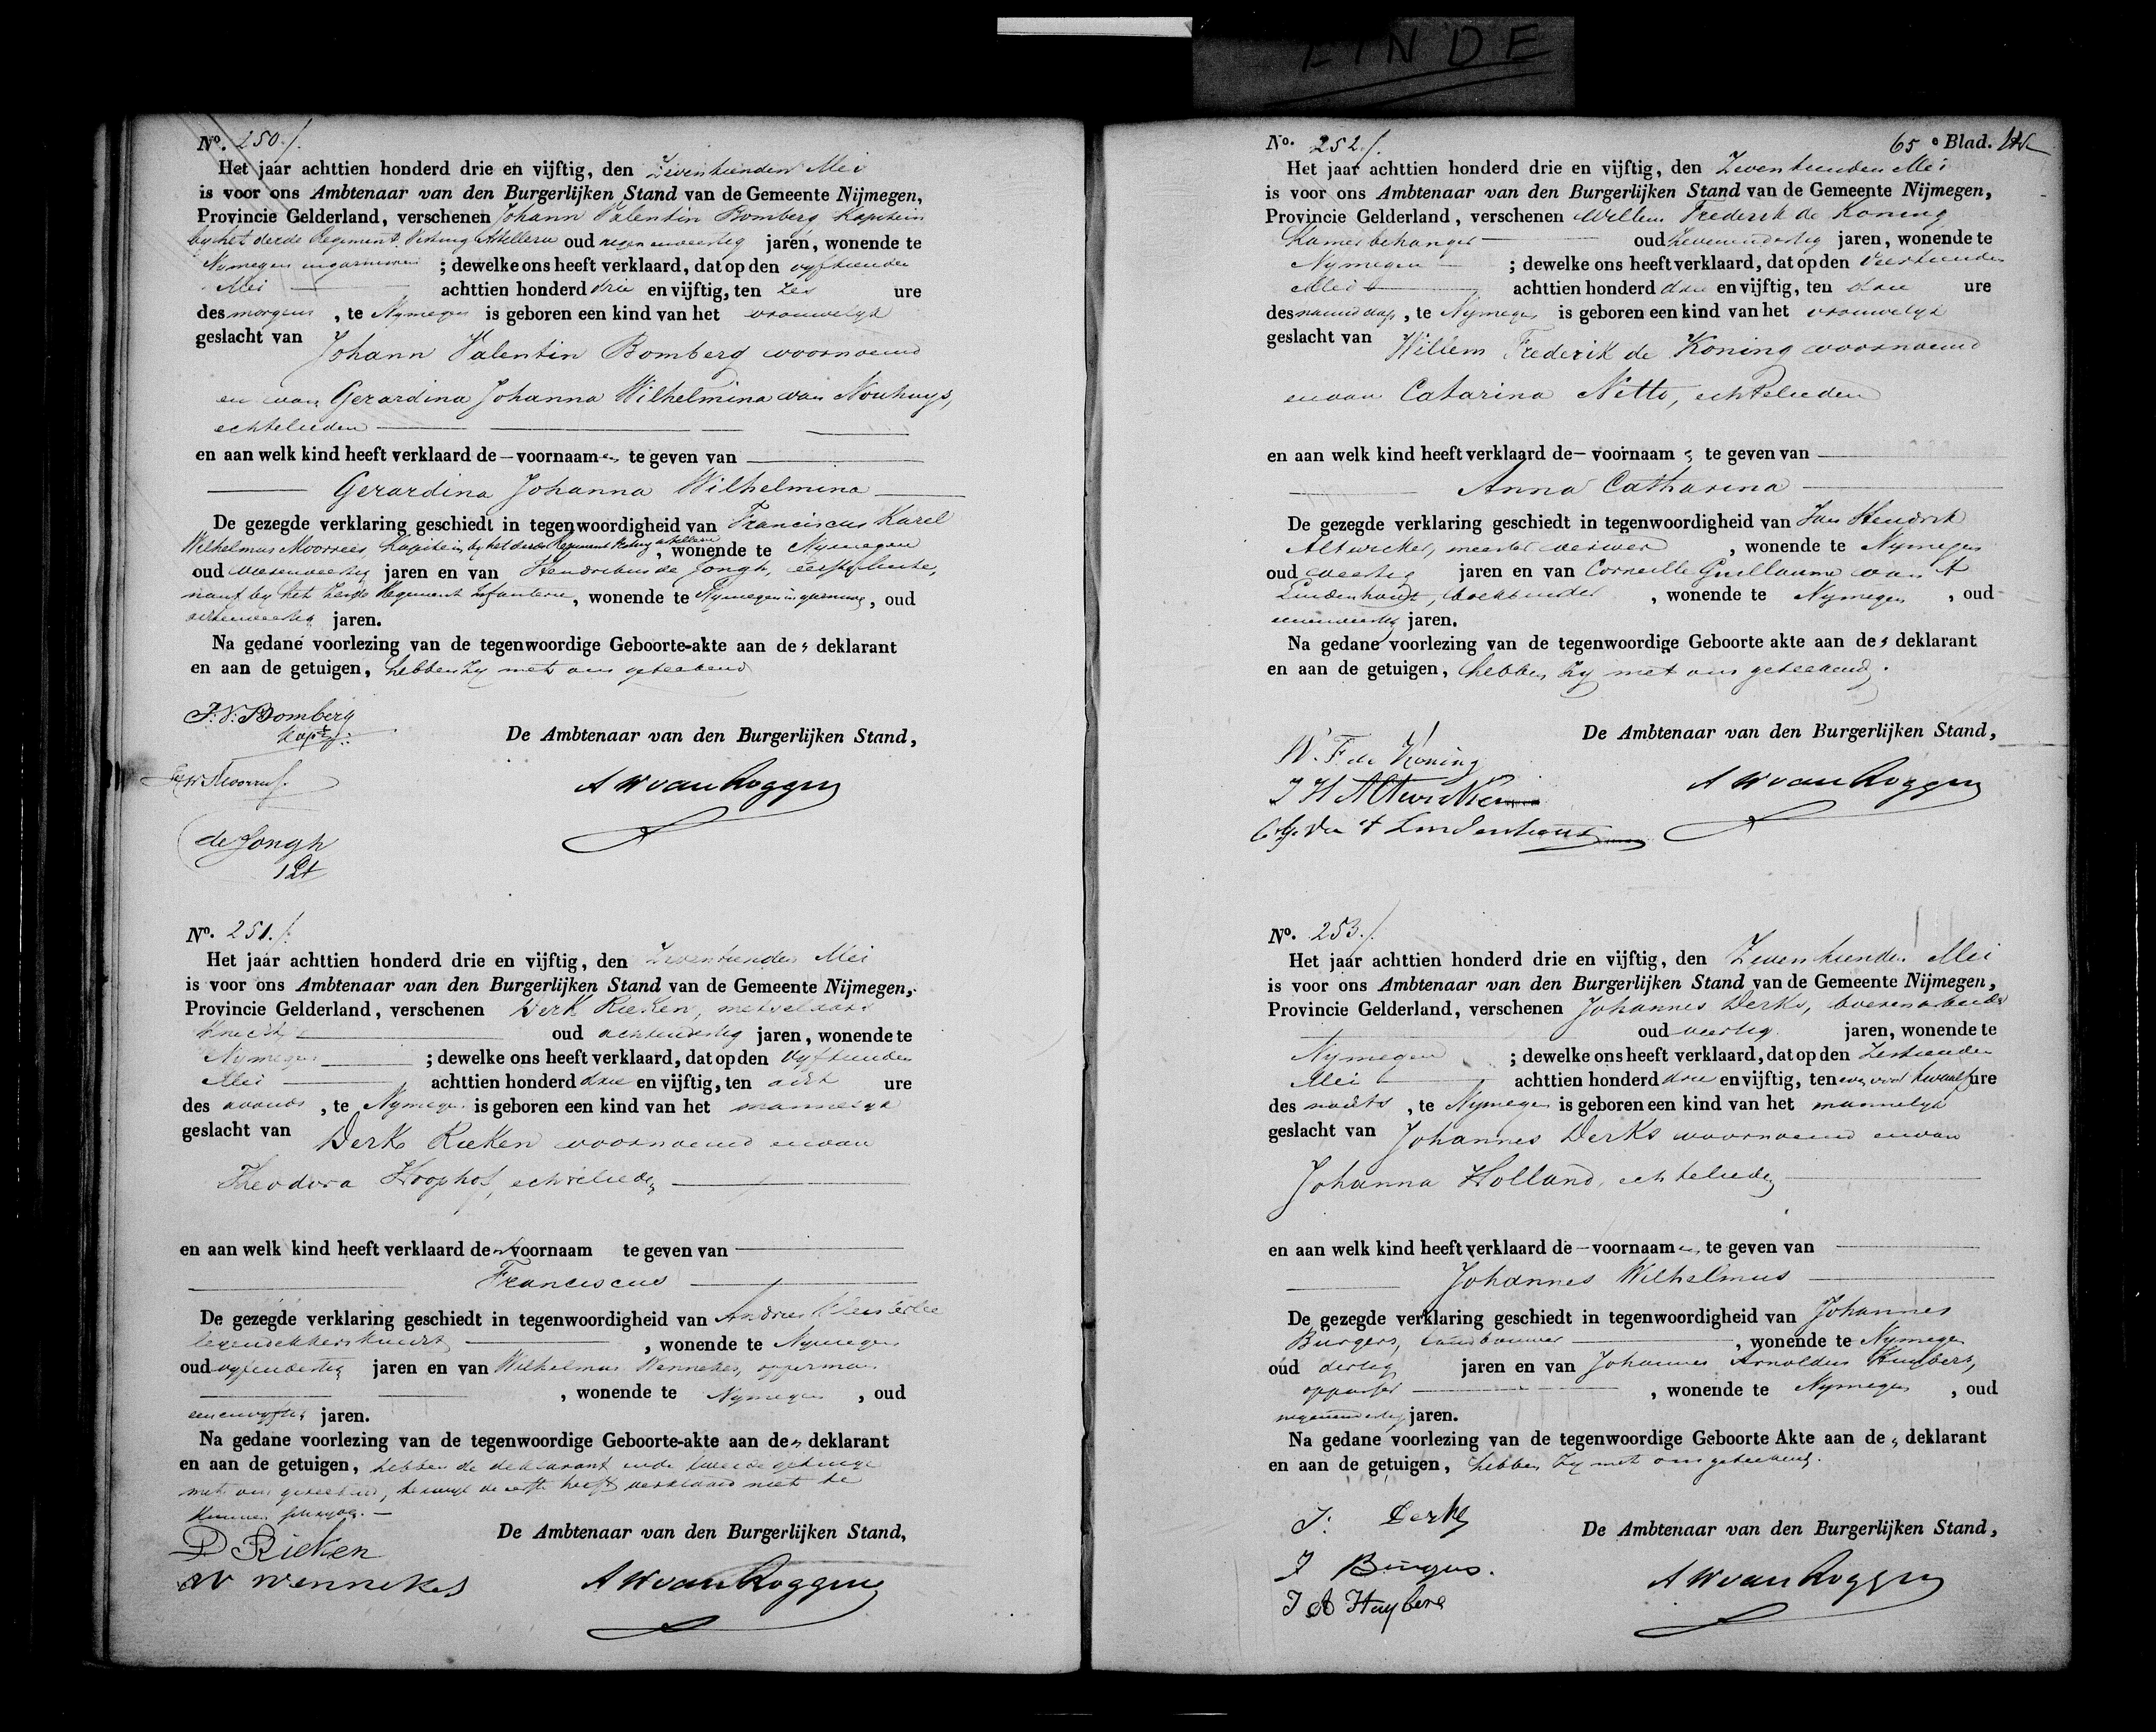 EINDE
No. 250./.
Het jaar achttien honderd drie en vijftig, den Zeventienden Mei
is voor ons Ambtenaar van den Burgerlijken Stand van de Gemeente Nijmegen,
Provincie Gelderland, verschenen Johann Valentin Bomberg Kapitein
by het derde Regiment Vesting Artillerie oud negen en veertig jaren, wonende te
Nymegen in garnisoen ; dewelke ons heeft verklaard, dat op den vyftienden
Mei achttien honderd drie en vijftig, ten zes ure
des morgens , te Nymegen is geboren een kind van het vrouwelyk
geslacht van Johann Valentin Bomberg voornoemd
en van Gerardina Johanna Wilhelmina van Nouhuys,
echtelieden
en aan welk kind heeft verklaard de voornaamen te geven van
Gerardina Johanna Wilhelmina
De gezegde verklaring geschiedt in tegenwoordigheid van Franciscus Karel
Wilhelmus Moorrees, Kapitein by het derde Regiment Vesting Artillerie , wonende te Nymegen
oud vierenveertig jaren en van Hendrikus de Jongh, eerste luite,
nant by het Regiment Infanterie, wonende te Nymegen in garnisoen, oud
jaren.
Na gedane voorlezing van de tegenwoordige Geboorte-akte aan den deklarant
en aan de getuigen, hebben zy met ons geteekend
J. V. Bomberg
Kapt.
De Ambtenaar van den Burgerlijken Stand,
A W van Roggen
de Jongh
1 Lt
No. 251./.
Het jaar achttien honderd drie en vijftig, den Zeventienden Mei
is voor ons Ambtenaar van den Burgerlijken Stand van de Gemeente Nijmegen,
Provincie Gelderland, verschenen Derk Rieken, metselaars
Knecht oud achtendertig jaren, wonende te
Nymegen ; dewelke ons heeft verklaard, dat op den vyftienden
Mei achttien honderd drie en vijftig, ten acht ure
des avonds , te Nymegen is geboren een kind van het mannelyk
geslacht van Derk Rieken voornoemd en van
Theodora Hoophof, echtelieden
en aan welk kind heeft verklaard den voornaam te geven van
Franciscus
De gezegde verklaring geschiedt in tegenwoordigheid van Andries
leyendekkersknecht , wonende te Nymegen
oud vyfendertig jaren en van Wilhelmus Wennekes, opperman
, wonende te Nymegen , oud
eenenvyftig jaren.
Na gedane voorlezing van de tegenwoordige Geboorte-akte aan den deklarant
en aan de getuigen, hebben de deklarant en de tweede getuige
met ons geteekend, terwyl de eerste heeft verklaard niet te
kunnen schryven.
D Rieken
W Wennekes
De Ambtenaar van den Burgerlijken Stand,
A W van Roggen
No. 252./.
65e Blad.
Het jaar achttien honderd drie en vijftig, den Zeventienden Mei
is voor ons Ambtenaar van den Burgerlijken Stand van de Gemeente Nijmegen,
Provincie Gelderland, verschenen Willem Frederik de Koning
Kamerbehanger oud Zevenendertig jaren, wonende te
Nymegen ; dewelke ons heeft verklaard, dat op den Veertienden
Mei achttien honderd drie en vijftig, ten drie ure
des namiddags , te Nymegen is geboren een kind van het vrouwelyk
geslacht van Willem Frederik de Koning voornoemd
en van Catarina Netto, echtelieden
en aan welk kind heeft verklaard de voornaam te geven van
Anna Catharina
De gezegde verklaring geschiedt in tegenwoordigheid van Jan Hendrik
Altwicker, meester verwer , wonende te Nymegen
oud veertig jaren en van Corneille Guillaume van 't
Lindenhout, boekbinder , wonende te Nymegen , oud
eenenveertig jaren.
Na gedane voorlezing van de tegenwoordige Geboorte akte aan den deklarant
en aan de getuigen, hebben zy met ons geteekend.
De Ambtenaar van den Burgerlijken Stand,
W. F. de Koning
A W van Roggen
J H Altwicker
C. G. van 't Lindenhout
No. 253./.
Het jaar achttien honderd drie en vijftig, den Zeventienden Mei
is voor ons Ambtenaar van den Burgerlijken Stand van de Gemeente Nijmegen,
Provincie Gelderland, verschenen Johannes Derks, boerenarbeider
oud veertig jaren, wonende te
Nymegen ; dewelke ons heeft verklaard, dat op den Zestienden
Mei achttien honderd drie en vijftig, ten even voor twaalf ure
des nachts , te Nymegen is geboren een kind van het mannelyk
geslacht van Johannes Derks voornoemd en van
Johanna Holland, echtelieden
en aan welk kind heeft verklaard de voornaamen te geven van
Johannes Wilhelmus
De gezegde verklaring geschiedt in tegenwoordigheid van Johannes
Burgers, landbouwer , wonende te Nymegen
oud dertig jaren en van Johannes Arnoldus Huybers,
oppasser , wonende te Nymegen , oud
negenendertig jaren.
Na gedane voorlezing van de tegenwoordige Geboorte Akte aan den deklarant
en aan de getuigen, hebben zy met ons geteekend.
J. Derks
De Ambtenaar van den Burgerlijken Stand,
J Burgers.
A W van Roggen
J A Huybers